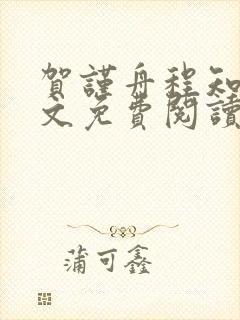 賀謹舟程知
文免費閱讀
蒲可鑫